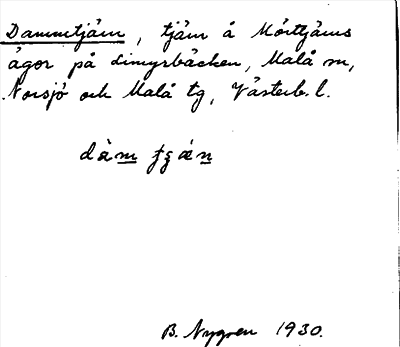 Dammtjärn, tjärn å Mörttjärns
ägor på Limyrbäcken, Malå sn,
Norsjö och Malå tg, Västerb. l.
dàm tʃæ̀n
B. Nygren 1930.